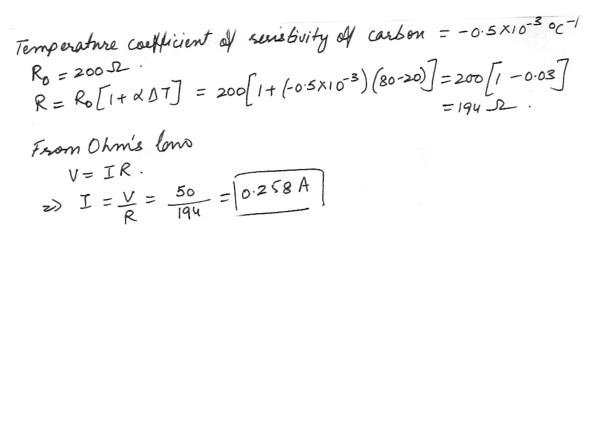 Temperature coefficient of sensitivity of carbon = -0.5×10⁻³ °C⁻¹
R₀ = 200 Ω.
R = R₀[1+αΔT] = 200[1+(-0.5×10⁻³)(80-20)] = 200[1-0.03]
= 194 Ω.
From Ohm's law
V = IR.
=> I = V/R = 50/194 = 0.258 A